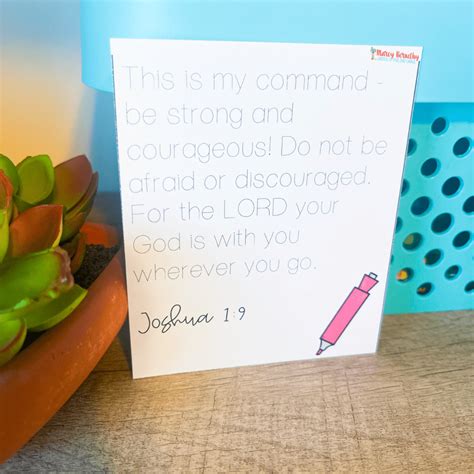 Marcy Bernethy
This is my command -
be strong and
courageous! Do not be
afraid or discouraged.
For the LORD your
God is with you
wherever you go.
Joshua 1:9